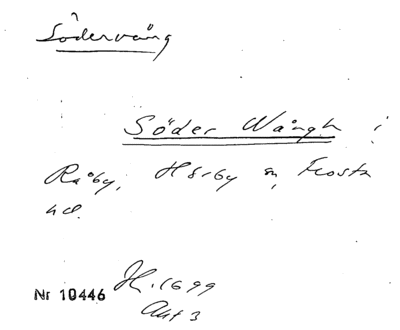 Södervång
Söder Wångh i
Råby, Hörby sn, Frosta
hd.
H. 1699
Nr 10446
Akt 3